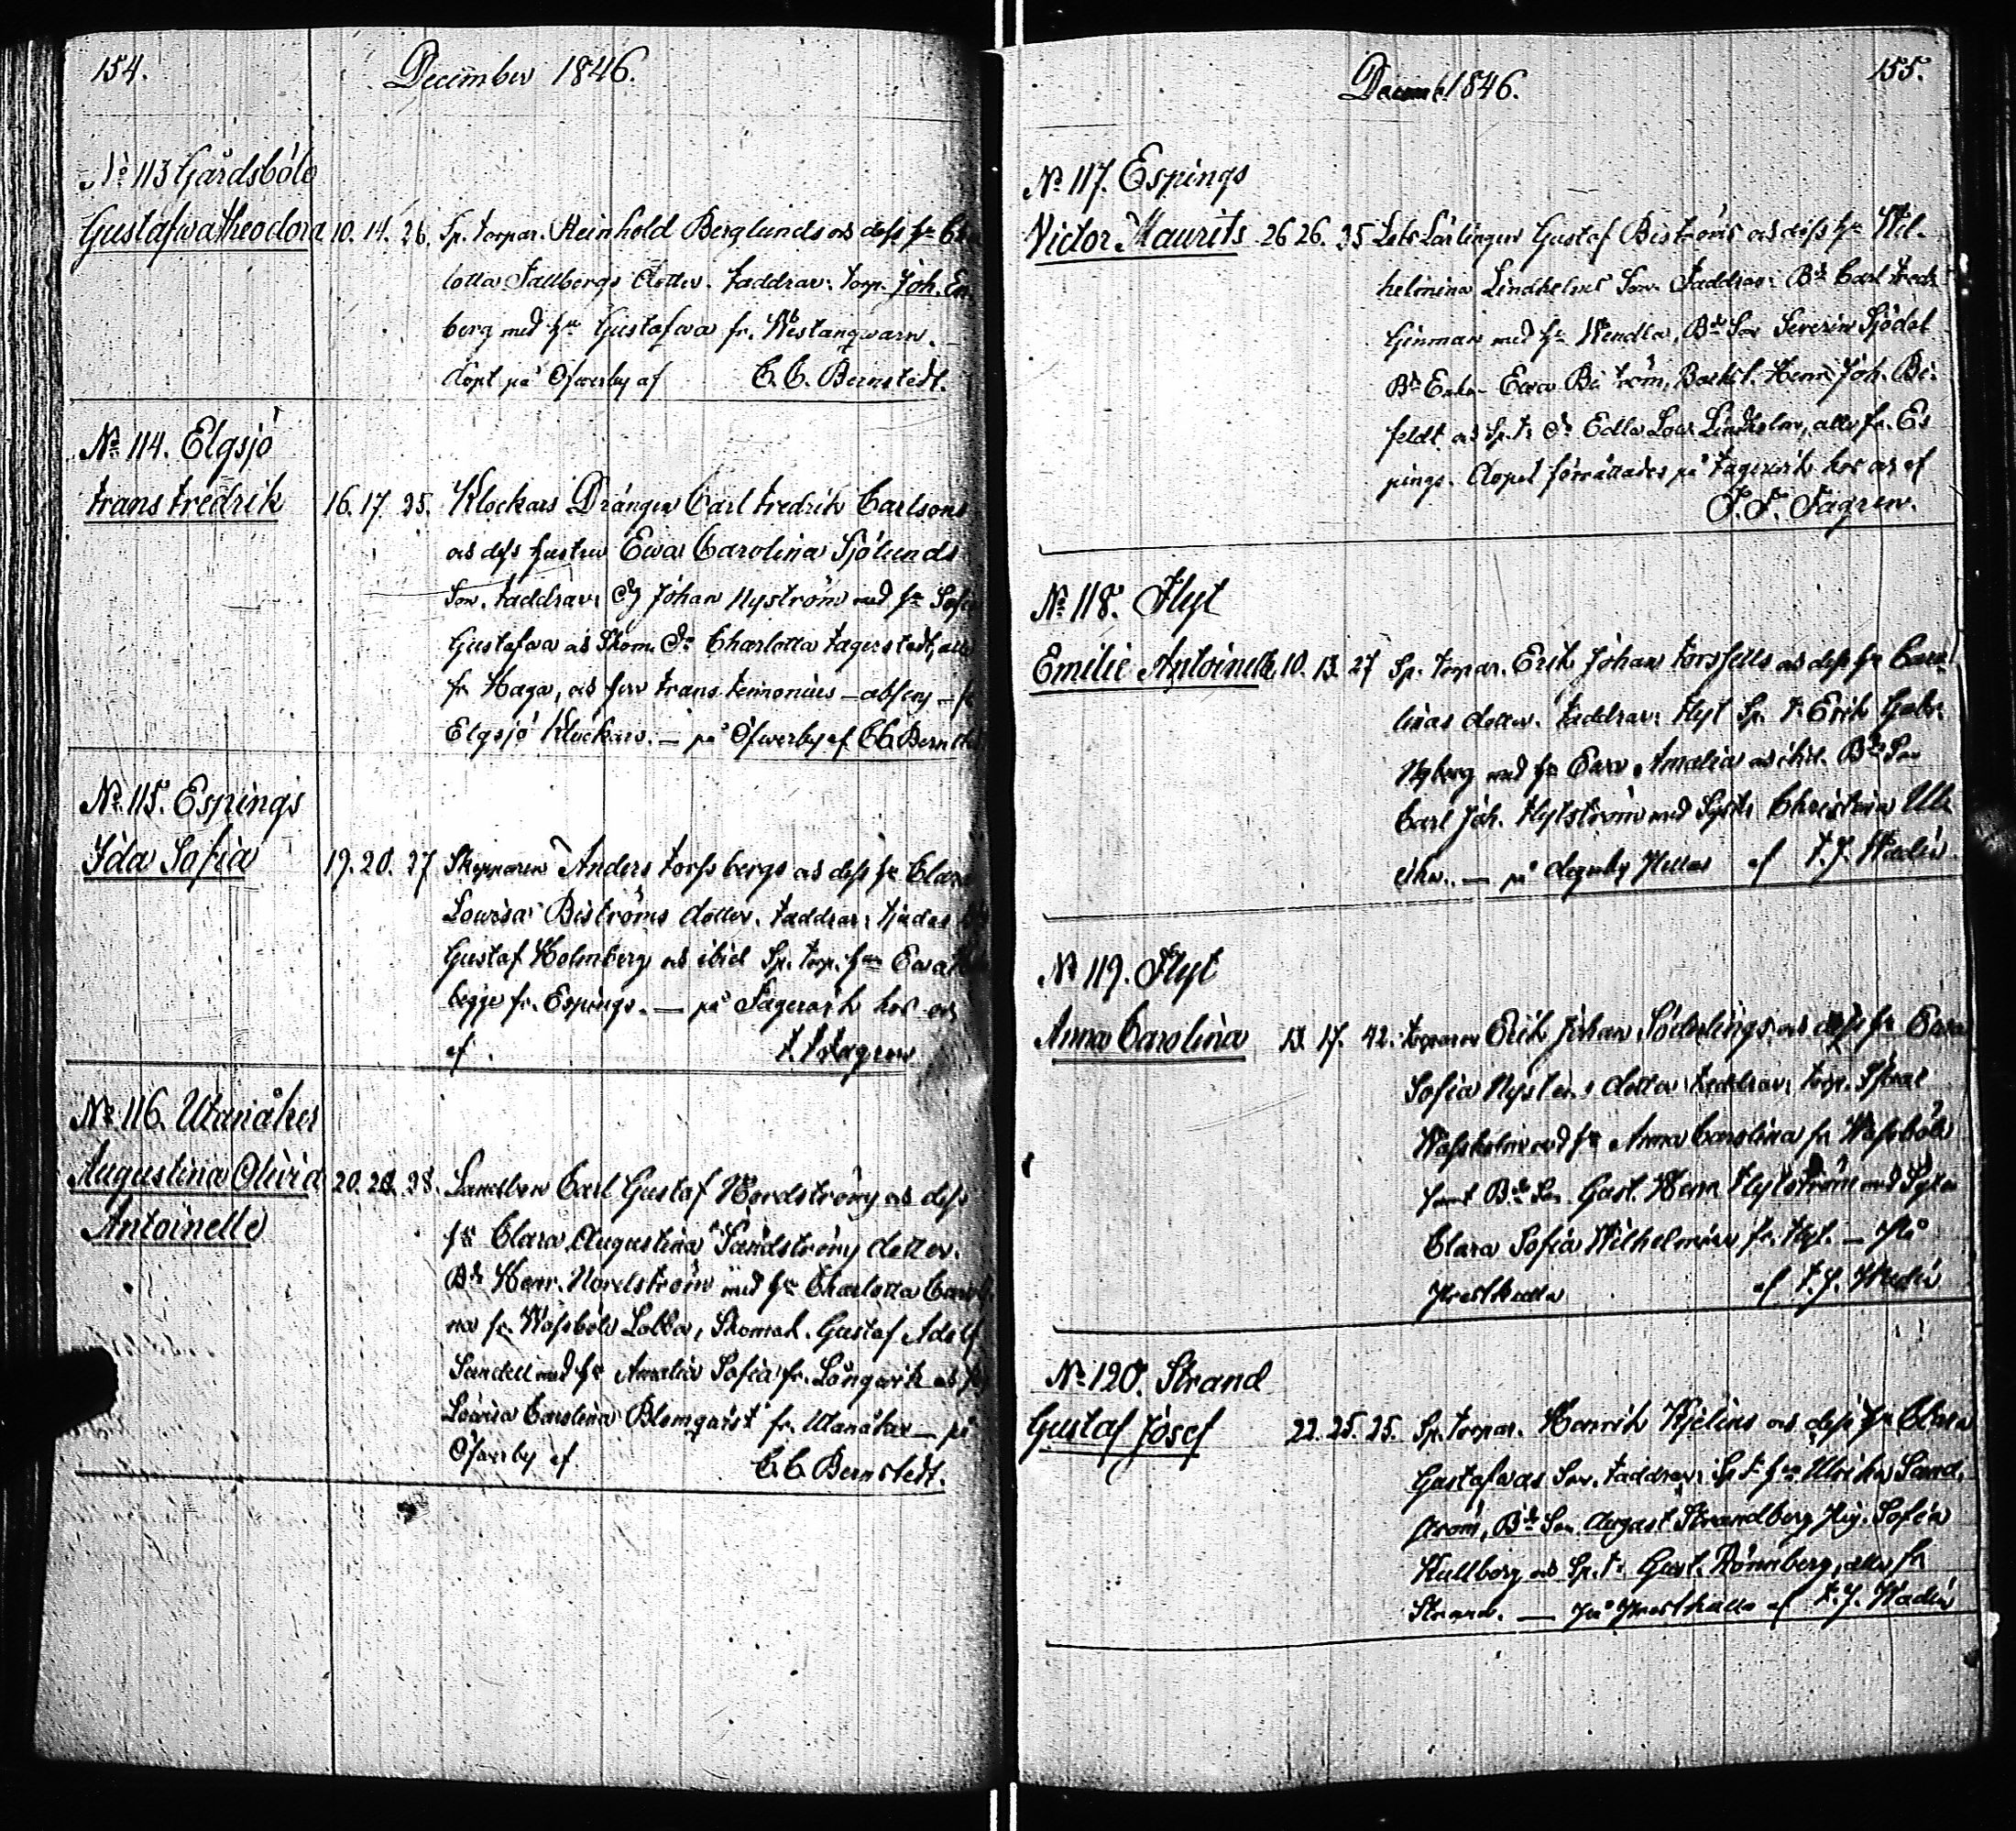 154.
December 1846.
No 113 Gårdsböle
Gustafwa Theodora 10. 14. 26. Sp. torpar. Reinhold Berglunds och dess hu
lotta Fallbergs dotter. Faddrar: torp. Joh. En
berg med hu Gustafwa fr. Westanqwarn.
döpt på Öfwerby af C. C. Bernstedt.
No 114. Elgsjö
Frans Fredrik 16. 17. 25. Klockars Drängen Carl Fredrik Carlsons
och dess hustru Ewa Carolina Sjölunds
Son. Faddrar: Johan Nyström med hu Sofia
Gustafwa och Skom. Charlotta Fagerstedt, alla
fr Haga, och Frans
Elgsjö Klockars. — på Öfwerby af C. C. Bernstedt
No 115. Espings
Ida Sofia 19. 20. 27 Skepparen Anders Forssbergs och dess hu Clara
Lowisa Biströms dotter. Faddrar:
Gustaf Holmberg och ibid Sp. torp. Ewa
begge fr. Espings. — på Fagerwik hos och
af F. F. Fagren
No 116. Utanåker
Augustina Olivia 20. 20. 38. Carl Gustaf Nordströms och dess
Antoinette
hu Clara Augustina Sandströms dotter.
Bd Henr. Nordström med hu Charlotta Caroli
na fr. Wassböle Labba, Skomak. Gustaf Adolf
Sundell med hu Amalia Sofia fr. Långwik och
Lowisa Carolina Blomqvist fr. Utanåker — på
Öfwerby af C. C. Bernstedt.
155.
Decemb 1846.
No 117. Espings
Victor Maurits 26 26. 35 Lots Lärlingen Gustaf Biströms och dess hu Wil-
helmina Lindholms Son. Faddrar: Bd Carl Fredr
med hu Wendla, Bd Son Severin Sjödal
Bd Enka Ewa Biström, Henr Joh. Bi-
feldt och Sp. t. dr Edla Low. Lindholm, alla fr. Es
pings. dopet förrättades på Fagerwik hos och af
F. F. Fagren.
No 118. Flyt
Emilie Antoinette 10. 13. 27 Sp. torpar. Erik Johan Forsfells och dess hu Caro
linas dotter. Faddrar: Flyt Sp. t. Erik Gabr.
Nyberg med hu Ewa Amalia och ibid. Bd Son
Carl Joh. Flytström med Syster Christina Ul
rika. — på af F. J. Wadén
No 119. Flyt
Anna Carolina 13. 17. 42. torparen Erik Johan Söderlings och dess hu Ewa
Sofia dotter Faddrar: torp.
med hu Anna Carolina fr Wassböle
samt Bd Son Gust. Henr Flytström med Syster
Clara Sofia Wilhelmina fr. Flyt. — På
Prestkulla af F. J. Wadén
No 120. Strand
Gustaf Josef 22. 25. 25. Sp. torpar. Henrik Kjelins och dess hu Clara
Gustafwas Son. Faddrar: Sp. t. hu Ulrika Sand-
ström, Bd Son August Strandberg Pig. Sofia
Kullberg och Sp. t. Gust. Rönnberg, alla fr
Strand. — På Prestkulla af F. J. Wadén